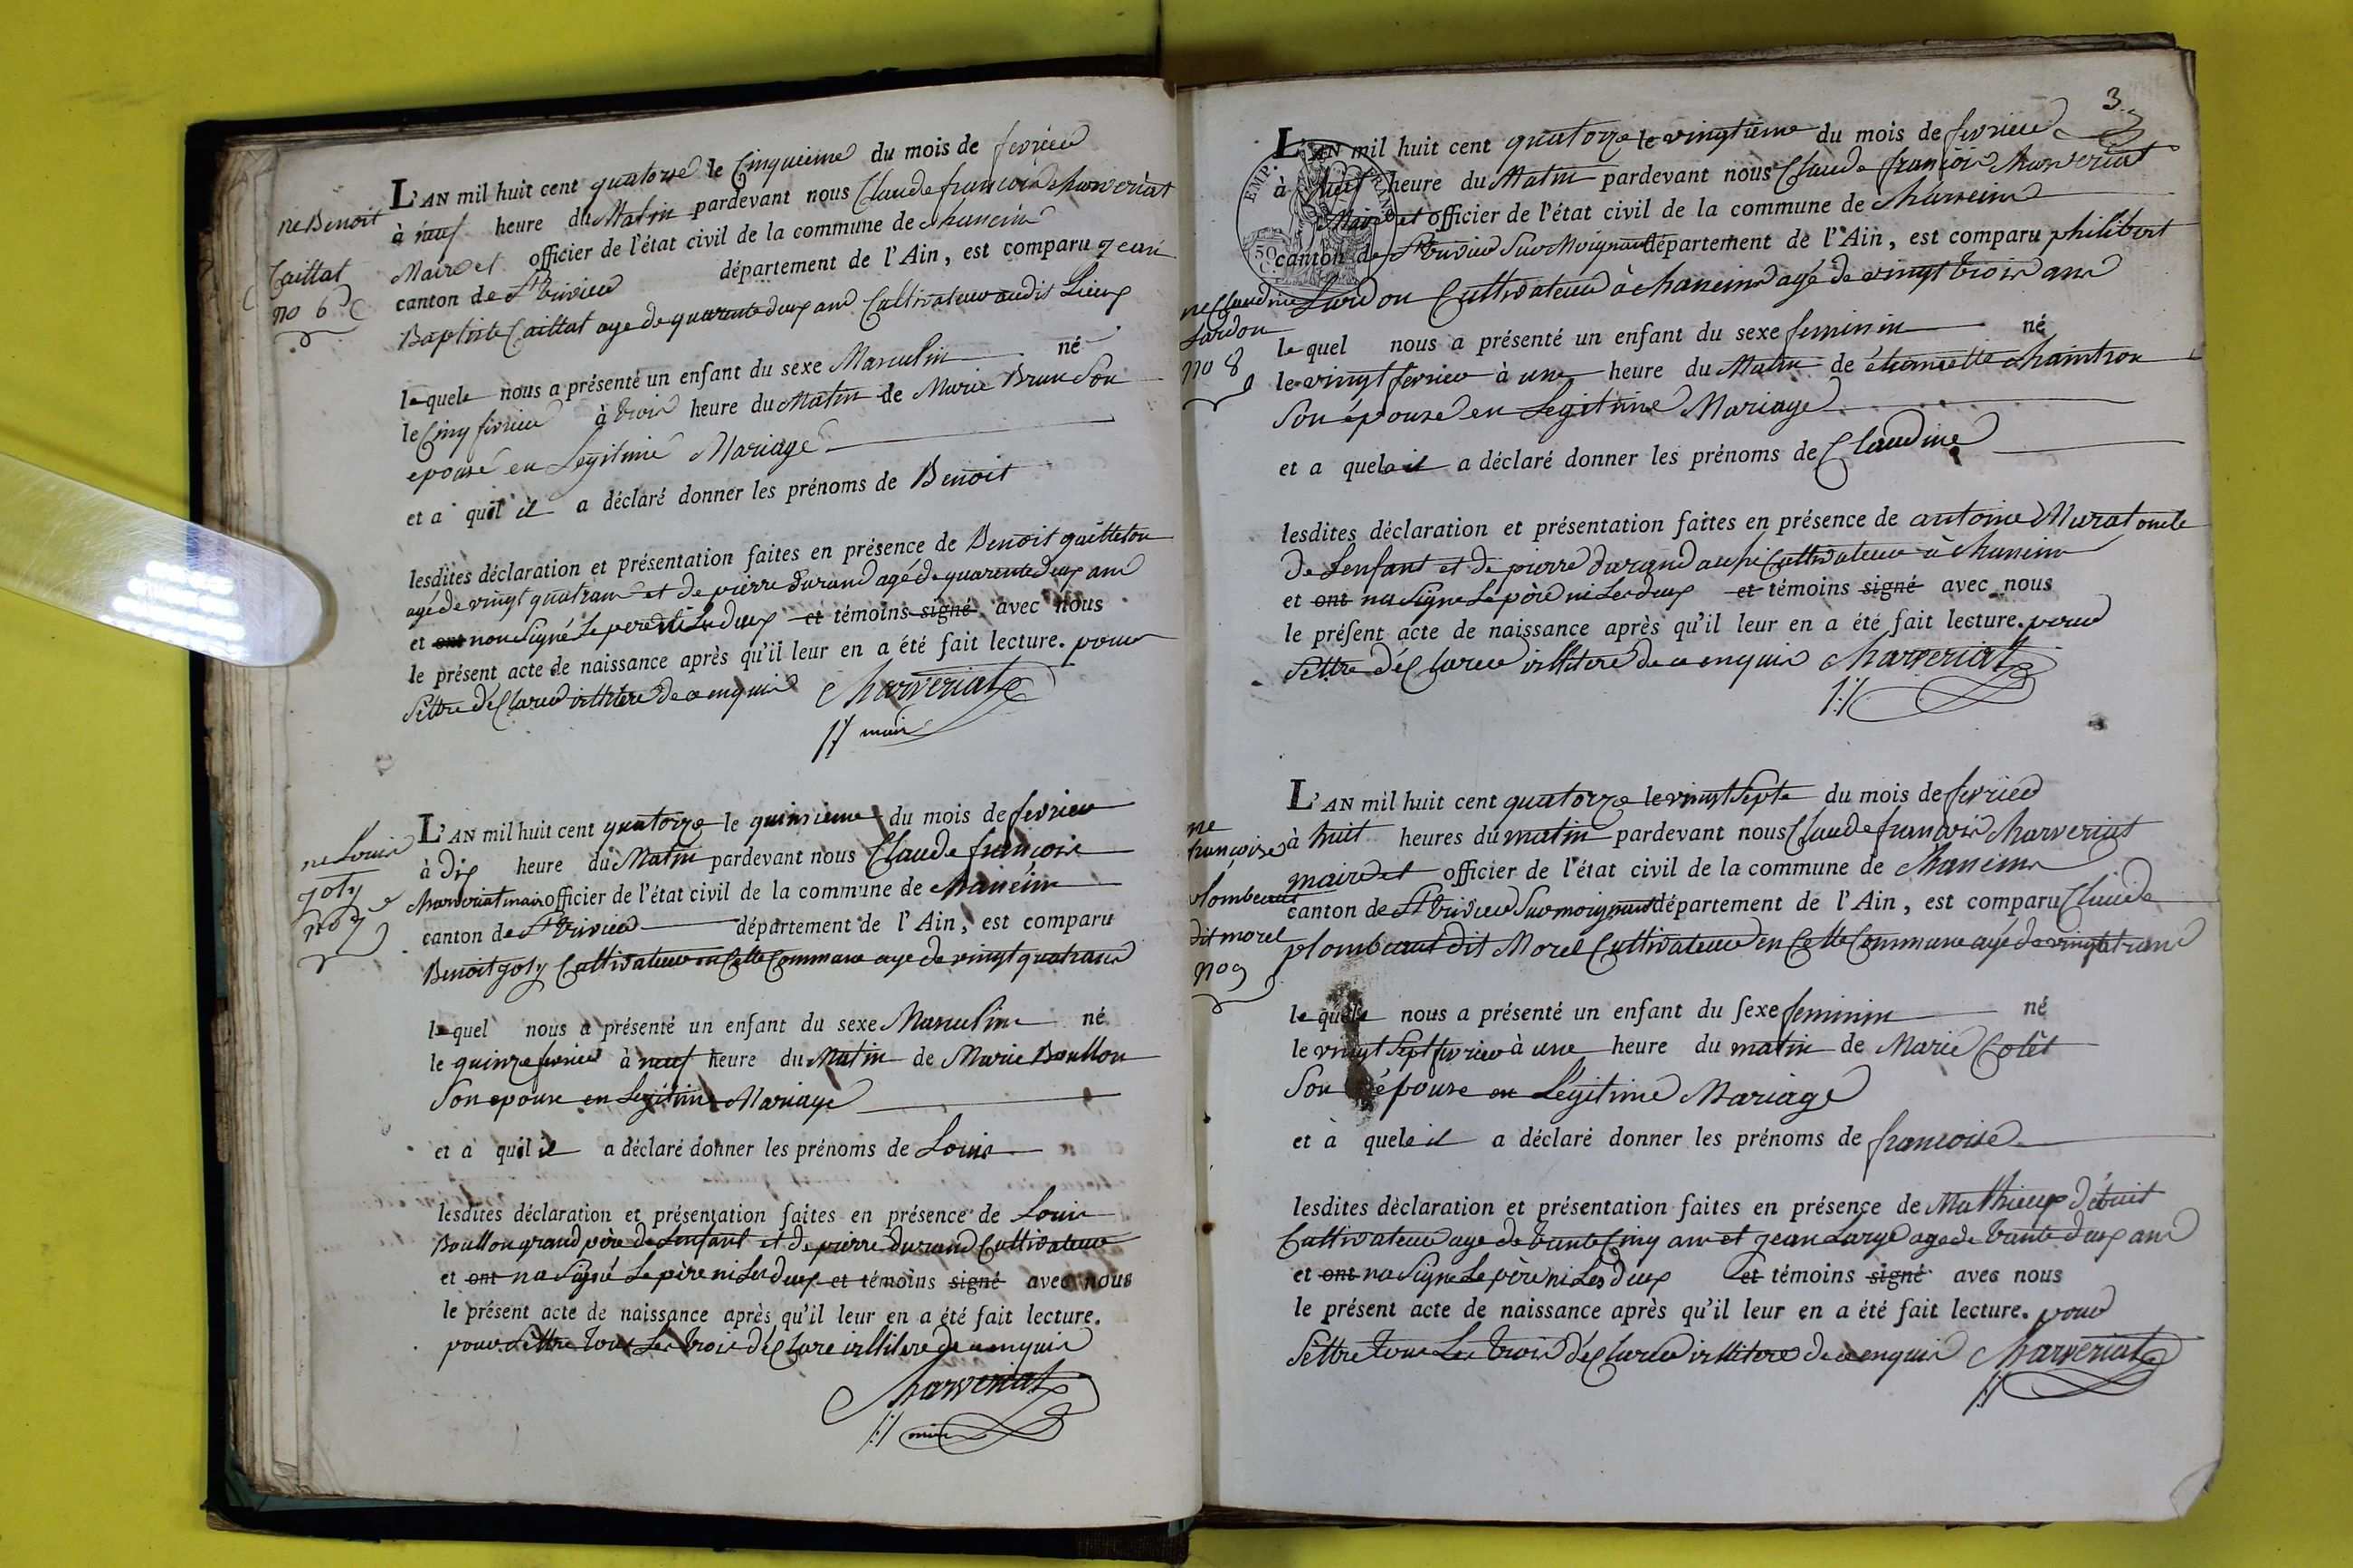 né Benoit
Caillat
no 6
L'AN mil huit cent quatorze le Cinquieme du mois de fevrier
à neuf heure du Matin pardevant nous Claude françois charveriat
Maire et officier de l'état civil de la commune de chaneins
canton de St trivier département de l'Ain, est comparu jean
Baptiste Caillat age de quarente deux ans Cultivateur audit Lieux
lequele nous a présenté un enfant du sexe Masculin né
le Cinq fevrier à trois heure du Matin de Marie Brun Son
epouse en Legitime Mariage
et a quil il a déclaré donner les prénoms de Benoit
lesdites déclaration et présentation faites en présence de Benoit guilleton
agé de vingt quatr ans et de pierre durand agé de quarente deux ans
et ont non Signé Le pere ni Les deux et témoins signé avec nous
le présent acte de naissance après qu'il leur en a été fait lecture. pour
Settre déClarer illitere de ce enquis Charveriat
maire
né Louis
joly
no 7
L'AN mil huit cent quatorze le quinsieme du mois de fevrier
à dix heure du Matin pardevant nous Claude françois
charveriat maire officier de l'état civil de la commune de chaneins
canton de St trivier département de l'Ain, est comparu
Benoit joly Cultivateur en Cette Commune age de vingt quatr ans
lequel nous a présenté un enfant du sexe Masculin né
le quinze fevrier à neuf heure du Matin de Marie Boullon
Son epouse en Legitime Mariage
et à quil il a déclaré donner les prénoms de Louis
lesdites déclaration et présentation faites en présence de Louis
Boullon grand père de Lenfant et de pierre durand Cultivateur
et ont na Signé Le père ni Les deux et témoins signé avec nous
le présent acte de naissance après qu'il leur en a été fait lecture.
pour Settre tous Les trois déClare illitere de ce enquis
Charveriat
maire
3
EMP. FRANC
50 C.
né Claudine
Lardon
no 8
L'AN mil huit cent quatorze le vingtieme du mois de fevrier
à huit heure du Matin pardevant nous Claude françois charveriat
Maire et officier de l'état civil de la commune de chaneins
canton de St trivier Sur Moignans département de l'Ain, est comparu philibert
Lardon Cultivateur à chaneins agé de vingt trois ans
le quel nous a présenté un enfant du sexe feminin né
le vingt fevrier à une heure du Matin de étiennette chaintron
Son épouse en Legitime Mariage
et a quele il a déclaré donner les prénoms de Claudine
lesdites déclaration et présentation faites en présence de antoine Murat oncle
de Lenfant et de pierre durand aussi Cultivateur à chaneins
et ont na Signe Le père ni Les deux et témoins signé avec nous
le présent acte de naissance après qu'il leur en a été fait lecture. pour
Settre déClarer illitere de ce enquis Charveriat
né
françoise
plombeaut
dit morel
no 9
L'AN mil huit cent quatorze le vingt Septe du mois de fevrier
à huit heures du matin pardevant nous Claude françois charveriat
maire et officier de l'état civil de la commune de chaneins
canton de St trivier Sur moignans département de l'Ain, est comparu Claude
plombeaut dit Morel Cultivateur en Cette Commune agé de vingt
le quele nous a présenté un enfant du sexe feminin né
le vingt Sept fevrier à une heure du matin de Marie Colet
Son épouse en Légitime Mariage
et à quele il a déclaré donner les prénoms de francoise
lesdites déclaration et présentation faites en présence de Mathieux débuit
Cultivateur age de trente Cinq ans et jean Large age de trente deux ans
et ont na Signe Le père ni Les deux et témoins signé avec nous
le présent acte de naissance après qu'il leur en a été fait lecture. pour
Settre tous Les trois déClarer illitere de ce enquis Charveriat